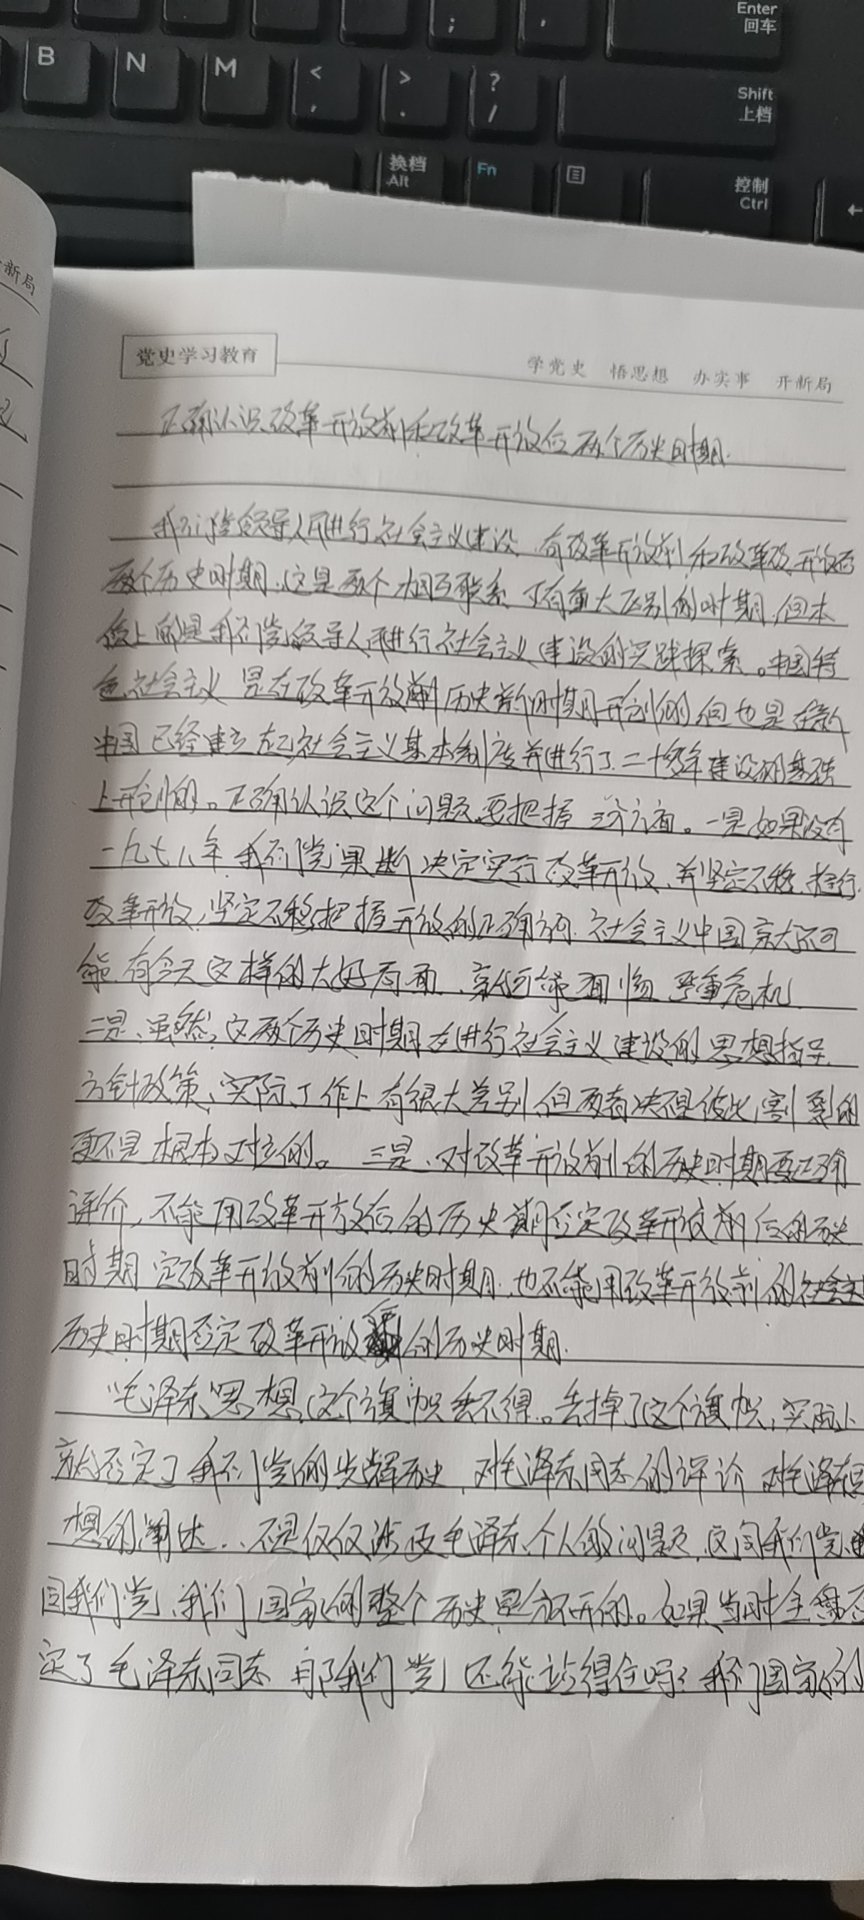 Enter
回车
;
,
B
N
M
<
,
>
.
?
/
Shift
上档
换档
Alt
Fn
控制
Ctrl
←
新局
党史学习教育
学党史 悟思想 办实事 开新局
正确认识改革开放前和改革开放后两个历史时期.
我们党领导人民进行社会主义建设、有改革开放前和改革开放后
两个历史时期.这是两个相互联系又有重大区别的时期,但本
质上都是我们党领导人民进行社会主义建设的实践探索。中国特
色社会主义是在改革开放历史新时期开创的,但也是在新
中国已经建立起社会主义基本制度并进行了二十多年建设的基础
上开创的。正确认识这个问题,要把握三个方面。一是如果没有
一九七八年我们党果断决定实行改革开放、并坚定不移推行
改革开放,坚定不移把握开放的正确方向.社会主义中国就不可
能有今天这样的大好局面、就可能面临严重危机
二是、虽然,这两个历史时期在进行社会主义建设的思想指导
方针政策、实际工作上有很大差别但两者决不是彼此割裂的
更不是根本对立的。三是、对改革开放前的历史时期要正确
评价,不能用改革开放后的历史期否定改革开放前的历史
时期 定改革开放前的历史时期.也不能用改革开放前的社会主
历史时期否定改革开放的历史时期.
"毛泽东思想这个旗帜丢不得。丢掉了这个旗帜,实际上
就否定了我们党的光辉历史,对毛泽东同志的评论 对毛泽东思
想的阐述..不是仅仅涉及毛泽东个人的问题,这同我们党
同我们党、我们国家的整个历史是分不开的。如果当时全盘否
定了毛泽东同志 那我们党还能站得住吗?我们国家的